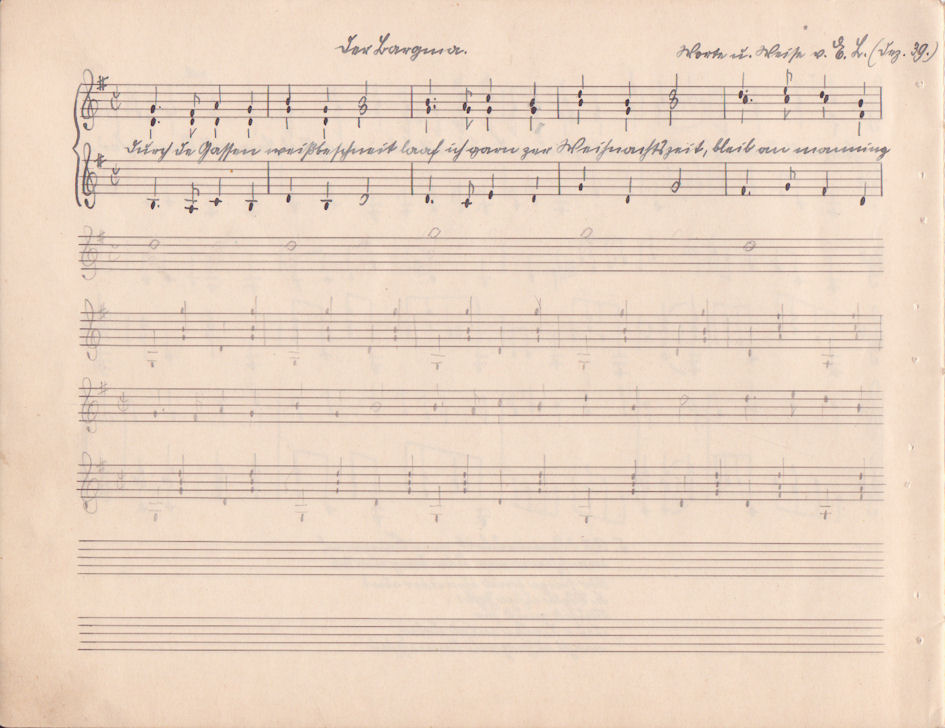 Der Bargma.
Worte u. Weise v. E. L. (Dez. 39.)
Durch de Gassen weißbeschneit laaf ich garn zer Weihnachtszeit, bleib an manning